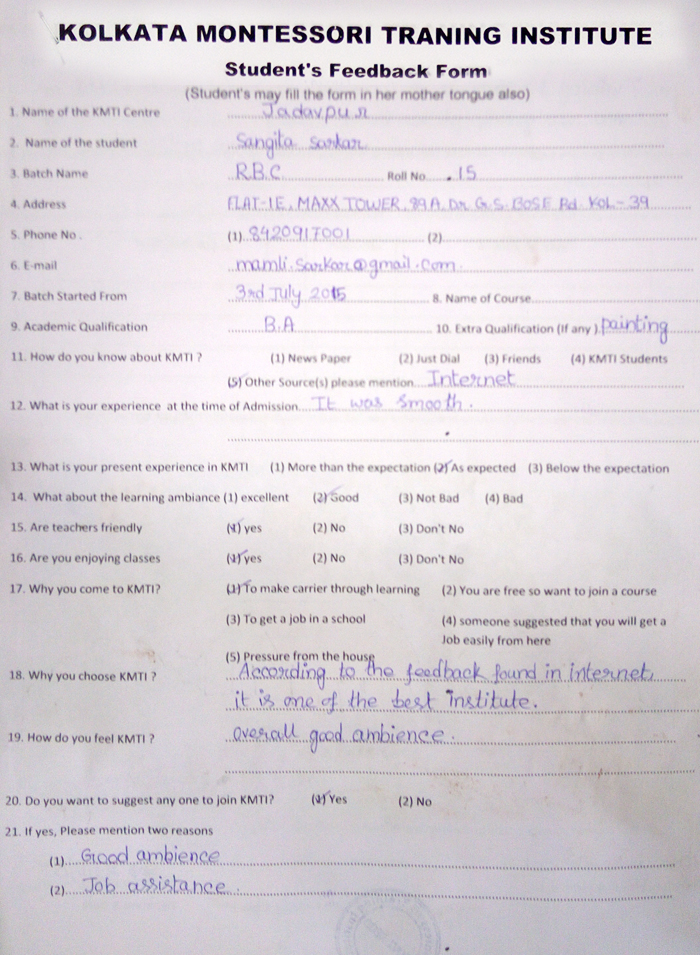 KOLKATA MONTESSORI TRANING INSTITUTE
Student's Feedback Form
(Student's may fill the form in her mother tongue also)
1. Name of the KMTI Centre Jadavpur
2. Name of the student Sangita Sarkar
3. Batch Name R.B.C Roll No. 15
4. Address FLAT-1E, MAXX TOWER, 89A, Dr. G.S. BOSE Rd. KOL-39
5. Phone No. (1) 8420917001 (2)
6. E-mail mamli.sarkar@gmail.com.
7. Batch Started From 3rd July 2015 8. Name of Course
9. Academic Qualification B.A 10. Extra Qualification (If any) painting
11. How do you know about KMTI ? (1) News Paper (2) Just Dial (3) Friends (4) KMTI Students
(5) Other Source(s) please mention Internet
12. What is your experience at the time of Admission It was smooth.
13. What is your present experience in KMTI (1) More than the expectation (2) As expected (3) Below the expectation
14. What about the learning ambiance (1) excellent (2) Good (3) Not Bad (4) Bad
15. Are teachers friendly (1) yes (2) No (3) Don't No
16. Are you enjoying classes (1) yes (2) No (3) Don't No
17. Why you come to KMTI? (1) To make carrier through learning (2) You are free so want to join a course
(3) To get a job in a school (4) someone suggested that you will get a
Job easily from here
(5) Pressure from the house
18. Why you choose KMTI ? According to the feedback found in internet,
it is one of the best institute.
19. How do you feel KMTI ? overall good ambience.
20. Do you want to suggest any one to join KMTI? (1) Yes (2) No
21. If yes, Please mention two reasons
(1) Good ambience
(2) Job assistance.